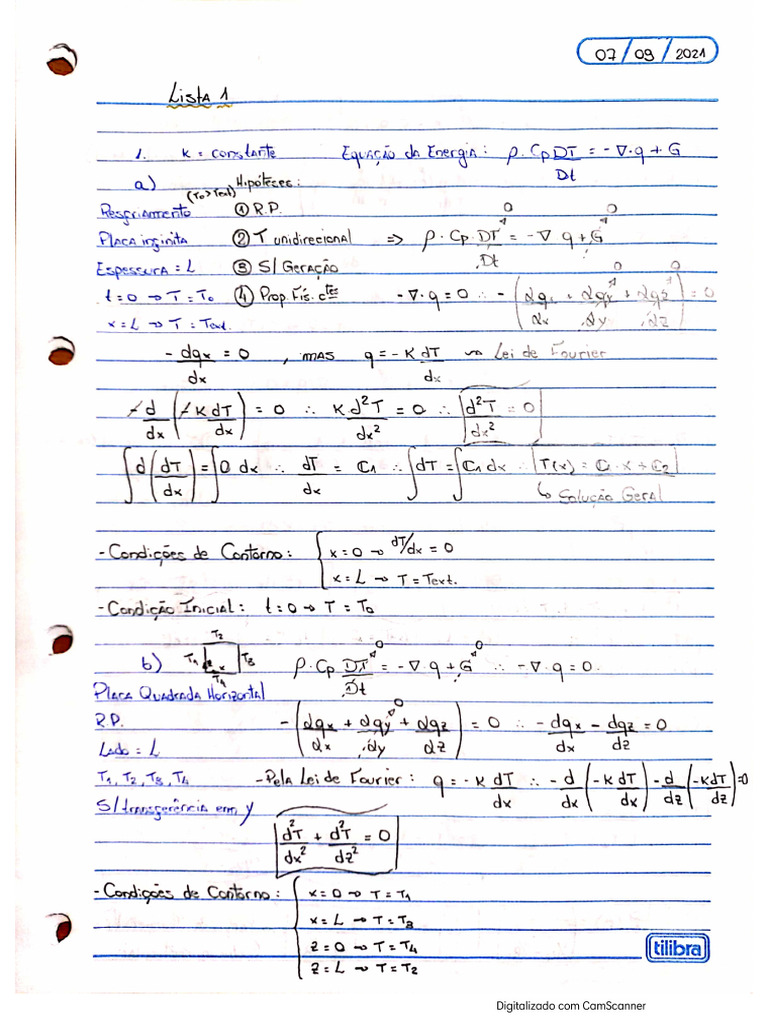 07/09/2021
Lista 1
1. K = constante Equação da Energia: ρ.Cp DT/Dt = -∇·q + G
a) Hipóteses:
(To>Text)
Resfriamento ① R.P. 0 0
Placa infinita ② T unidirecional => ρ.Cp.DT/Dt = -∇ q + G
Espessura = L ③ S/ Geração 0 0
t=0 → T=To ④ Prop. Fís. ctes -∇·q = 0 ∴ -(dqx/dx + dqy/dy + dqz/dz) = 0
x=L → T=Text.
-dqx/dx = 0 , mas q = -K dT/dx ~> Lei de Fourier
-d/dx (-K dT/dx) = 0 ∴ K d²T/dx² = 0 ∴ d²T/dx² = 0
∫d(dT/dx) = ∫0 dx ∴ dT/dx = C1 ∴ ∫dT = ∫C1 dx ∴ T(x) = C1·x + C2
↳ Solução Geral
- Condições de Contorno: { x=0 → dT/dx = 0
x=L → T=Text.
- Condição Inicial: t=0 → T=To
T2 0 0
b) T1 z x T3 ρ.Cp.DT/Dt = -∇·q + G ∴ -∇·q = 0.
T4
Placa Quadrada Horizontal 0
R.P. -(dqx/dx + dqy/dy + dqz/dz) = 0 ∴ -dqx/dx - dqz/dz = 0
Lado = L
T1, T2, T3, T4 - Pela Lei de Fourier: q = -K dT/dx ∴ -d/dx (-K dT/dx) - d/dz (-K dT/dz) = 0
S/ transferência em y
d²T/dx² + d²T/dz² = 0
- Condições de Contorno: { x=0 → T=T1
x=L → T=T3
z=0 → T=T4
z=L → T=T2
tilibra
Digitalizado com CamScanner